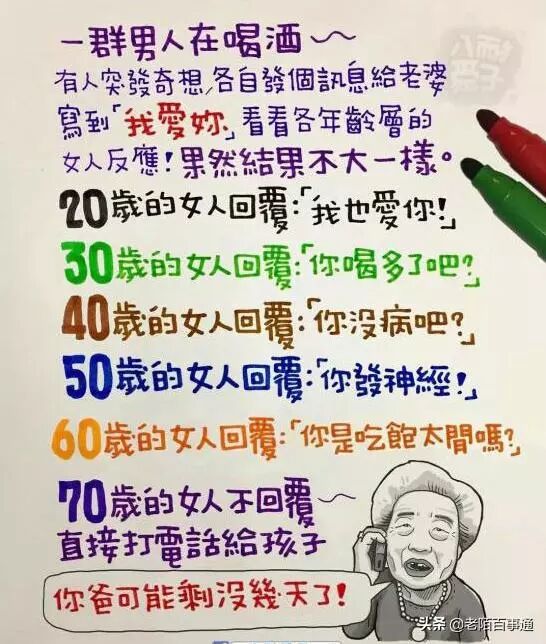 一群男人在喝酒~
有人突發奇想,各自發個訊息給老婆
寫到「我愛妳」看看各年齡層的
女人反應!果然結果不大一樣。
20歲的女人回覆:「我也愛你!」
30歲的女人回覆:「你喝多了吧?」
40歲的女人回覆:「你没病吧?」
50歲的女人回覆:「你發神經!」
60歲的女人回覆:「你是吃飽太閒嗎?」
70歲的女人不回覆~
直接打電話給孩子
你爸可能剩沒幾天了!
头条 @老陌百事通